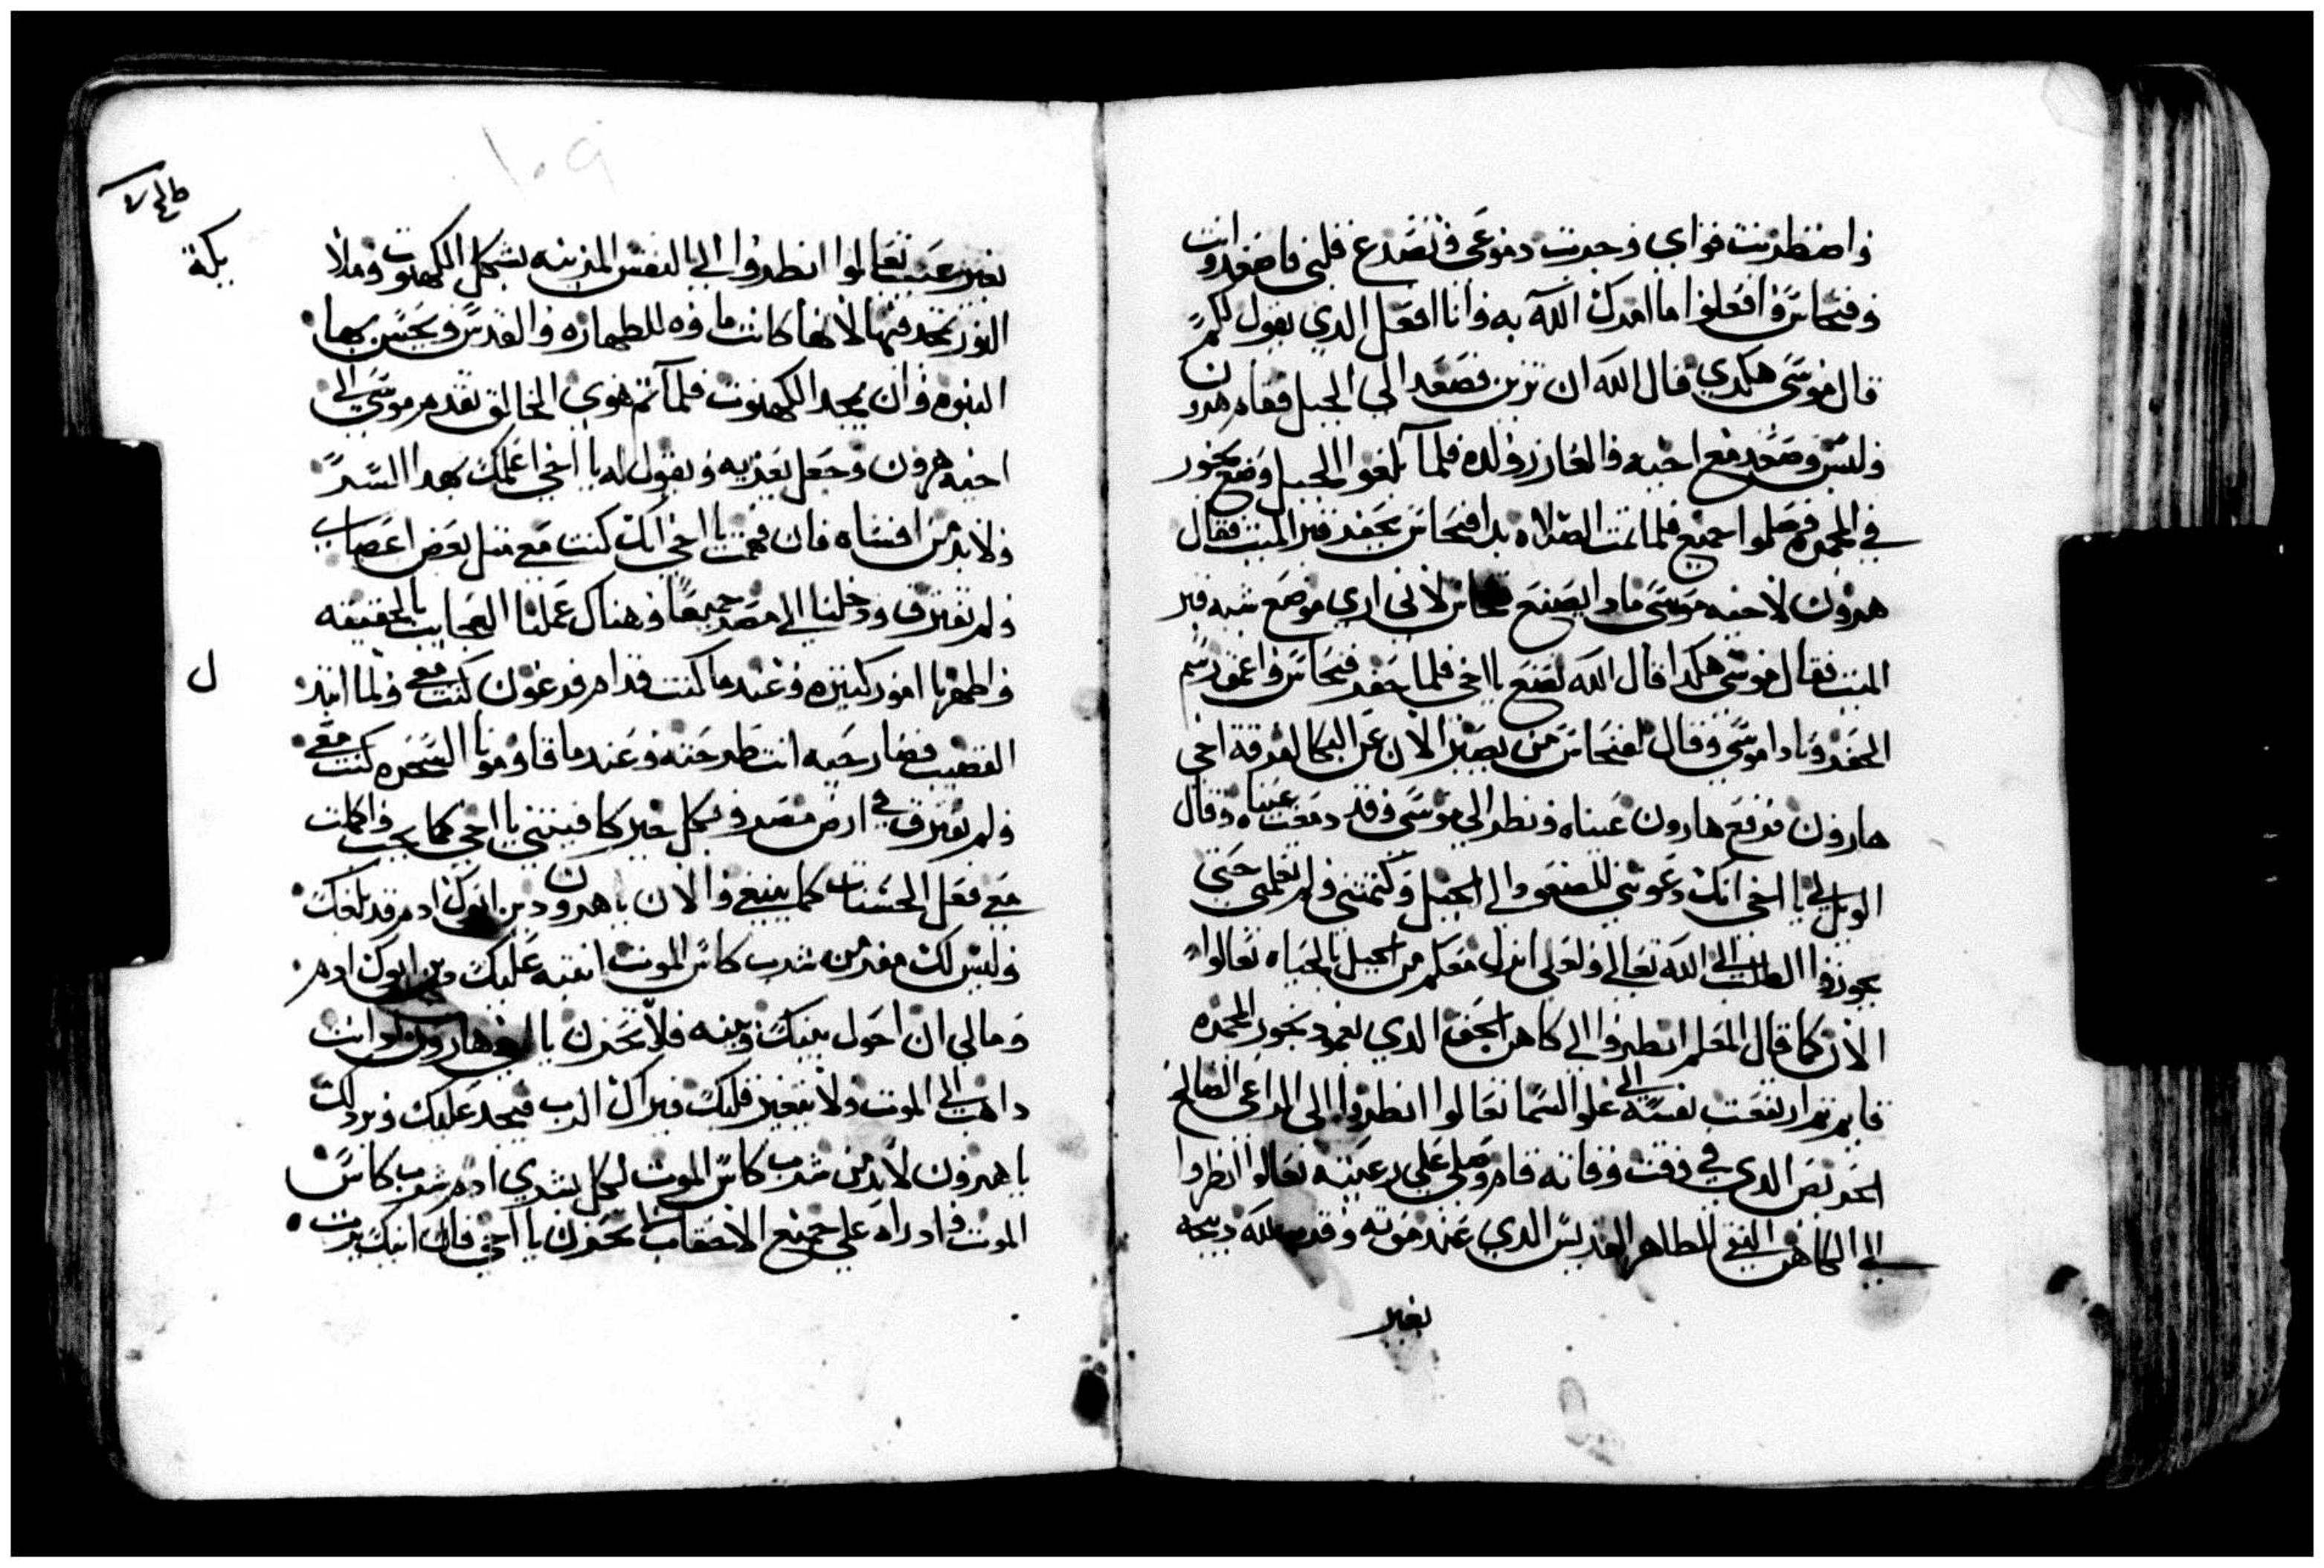 واضطربت قواي وجرت دموعي وتصدع قلبي فاصعد وانت
وفنحاس وافعلوا ما امرك الله به وانا افعل الذي يقول لكم
قال موسى هكدي قال الله ان تزين فصعد الى الجبل فقام هرون
ولبس وصعد مع اخيه والعازر ولده فلما بلغوا الجبل وضع بخور
في المجمره وصلوا جميع فلما تمت الصلاه بدا فنحاس بحفر قبر الميت فقال
هرون لاخيه موسى مادا يصنع فنحاس لاني اري موضع شبه قبر
الميت فقال موسى هكدا قال الله نصنع يا اخي فلما حفر فنحاس واعمق رسم
الحفر ونادا موسى وقال لفنحاس من يصبر الان عن البكا لفرقة اخي
هارون فرفع هارون عيناه ونظر الى موسى وقد دمعت عيناه وقال
الويل لي يا اخي انك دعوتني للصعود الى الجبل وكتمتني ولم تعلمني حتى
بجوزوا الطلب الى الله تعالى ولعلى انزل معكم من الجبل بالحياه تعالوا
الان كما قال المعلم انطروا الى كاهن الحق الدي بعمود بخور المجمره
قايم تم ارتفعت نفسه الى علو السما تعالوا انطروا الى الراعي الصالح
الحريص الدي في وقت وفاته قام وصلى على رعيته تعالوا انظروا
الى الكاهن النقي الطاهر القديس الدي عند موته وقدم لله دبيحه
بغير
١٠٩
بغير عيب تعالوا انطروا الى النفس المزينه بشكل الكهنوت وملا
النور تجد فيها لانها كانت ماوه للطهاره والقدس ويحسن بها
النبوه وان يمجد الكهنوت فلما تم هوي الخالق تقدم موسى الى
اخيه هرون وجعل يعزيه ويقول له يا اخي اعلمك بهدا السر
ولا بد من افشاه فان فهمت يا اخي انك كنت مع مثل بعض اعصاب
ولم نفترق ودخلنا الى مصر جميعا وهناك عملنا العجايب بالحقيقه
واظهرنا امور كبيره وعندما كنت قدام فرعون كنت معي ولما انتدر
القضيب فصار حيه انت طرحته وعندما قاومونا السحره كنت معي
ولم نفترق في ارض مصر وبكل خير كافيتني يا اخي كما يجب واكملت
مع فعل الحسنات كما ينبغي والان يا هرون دين ابوك ادم قد بلغك
وليس لك مفر من شرب كاس الموت انتبه عليك دين ابوك ادم
وما لي ان احول بينك وبينه فلا تحزن يا اخي هارون لو انت
داهب الى الموت ولا يتغير قلبك فيراك الرب فيحرد عليك ويردلك
يا هرون لا بد من شرب كاس الموت لكل بشري ادم شرب كاس
الموت واوراه على جميع الاعقاب لا تحزن يا اخي فان ابنك يرت
بكة
ل